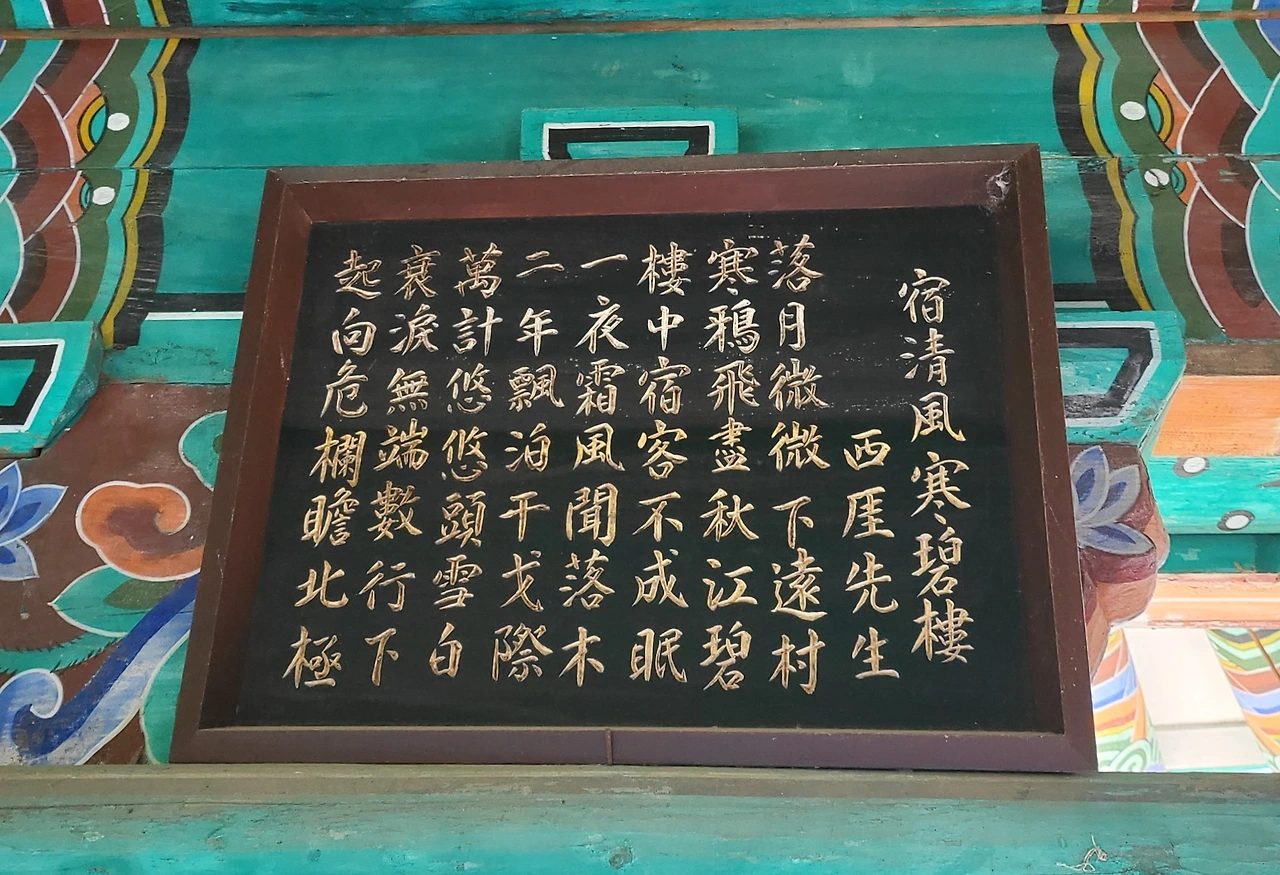 宿清風寒碧樓
西厓先生
落月微微下遠村
寒鴉飛盡秋江碧
樓中宿客不成眠
一夜霜風聞落木
二年飄泊干戈際
萬計悠悠頭雪白
衰淚無端數行下
起向危欄瞻北極